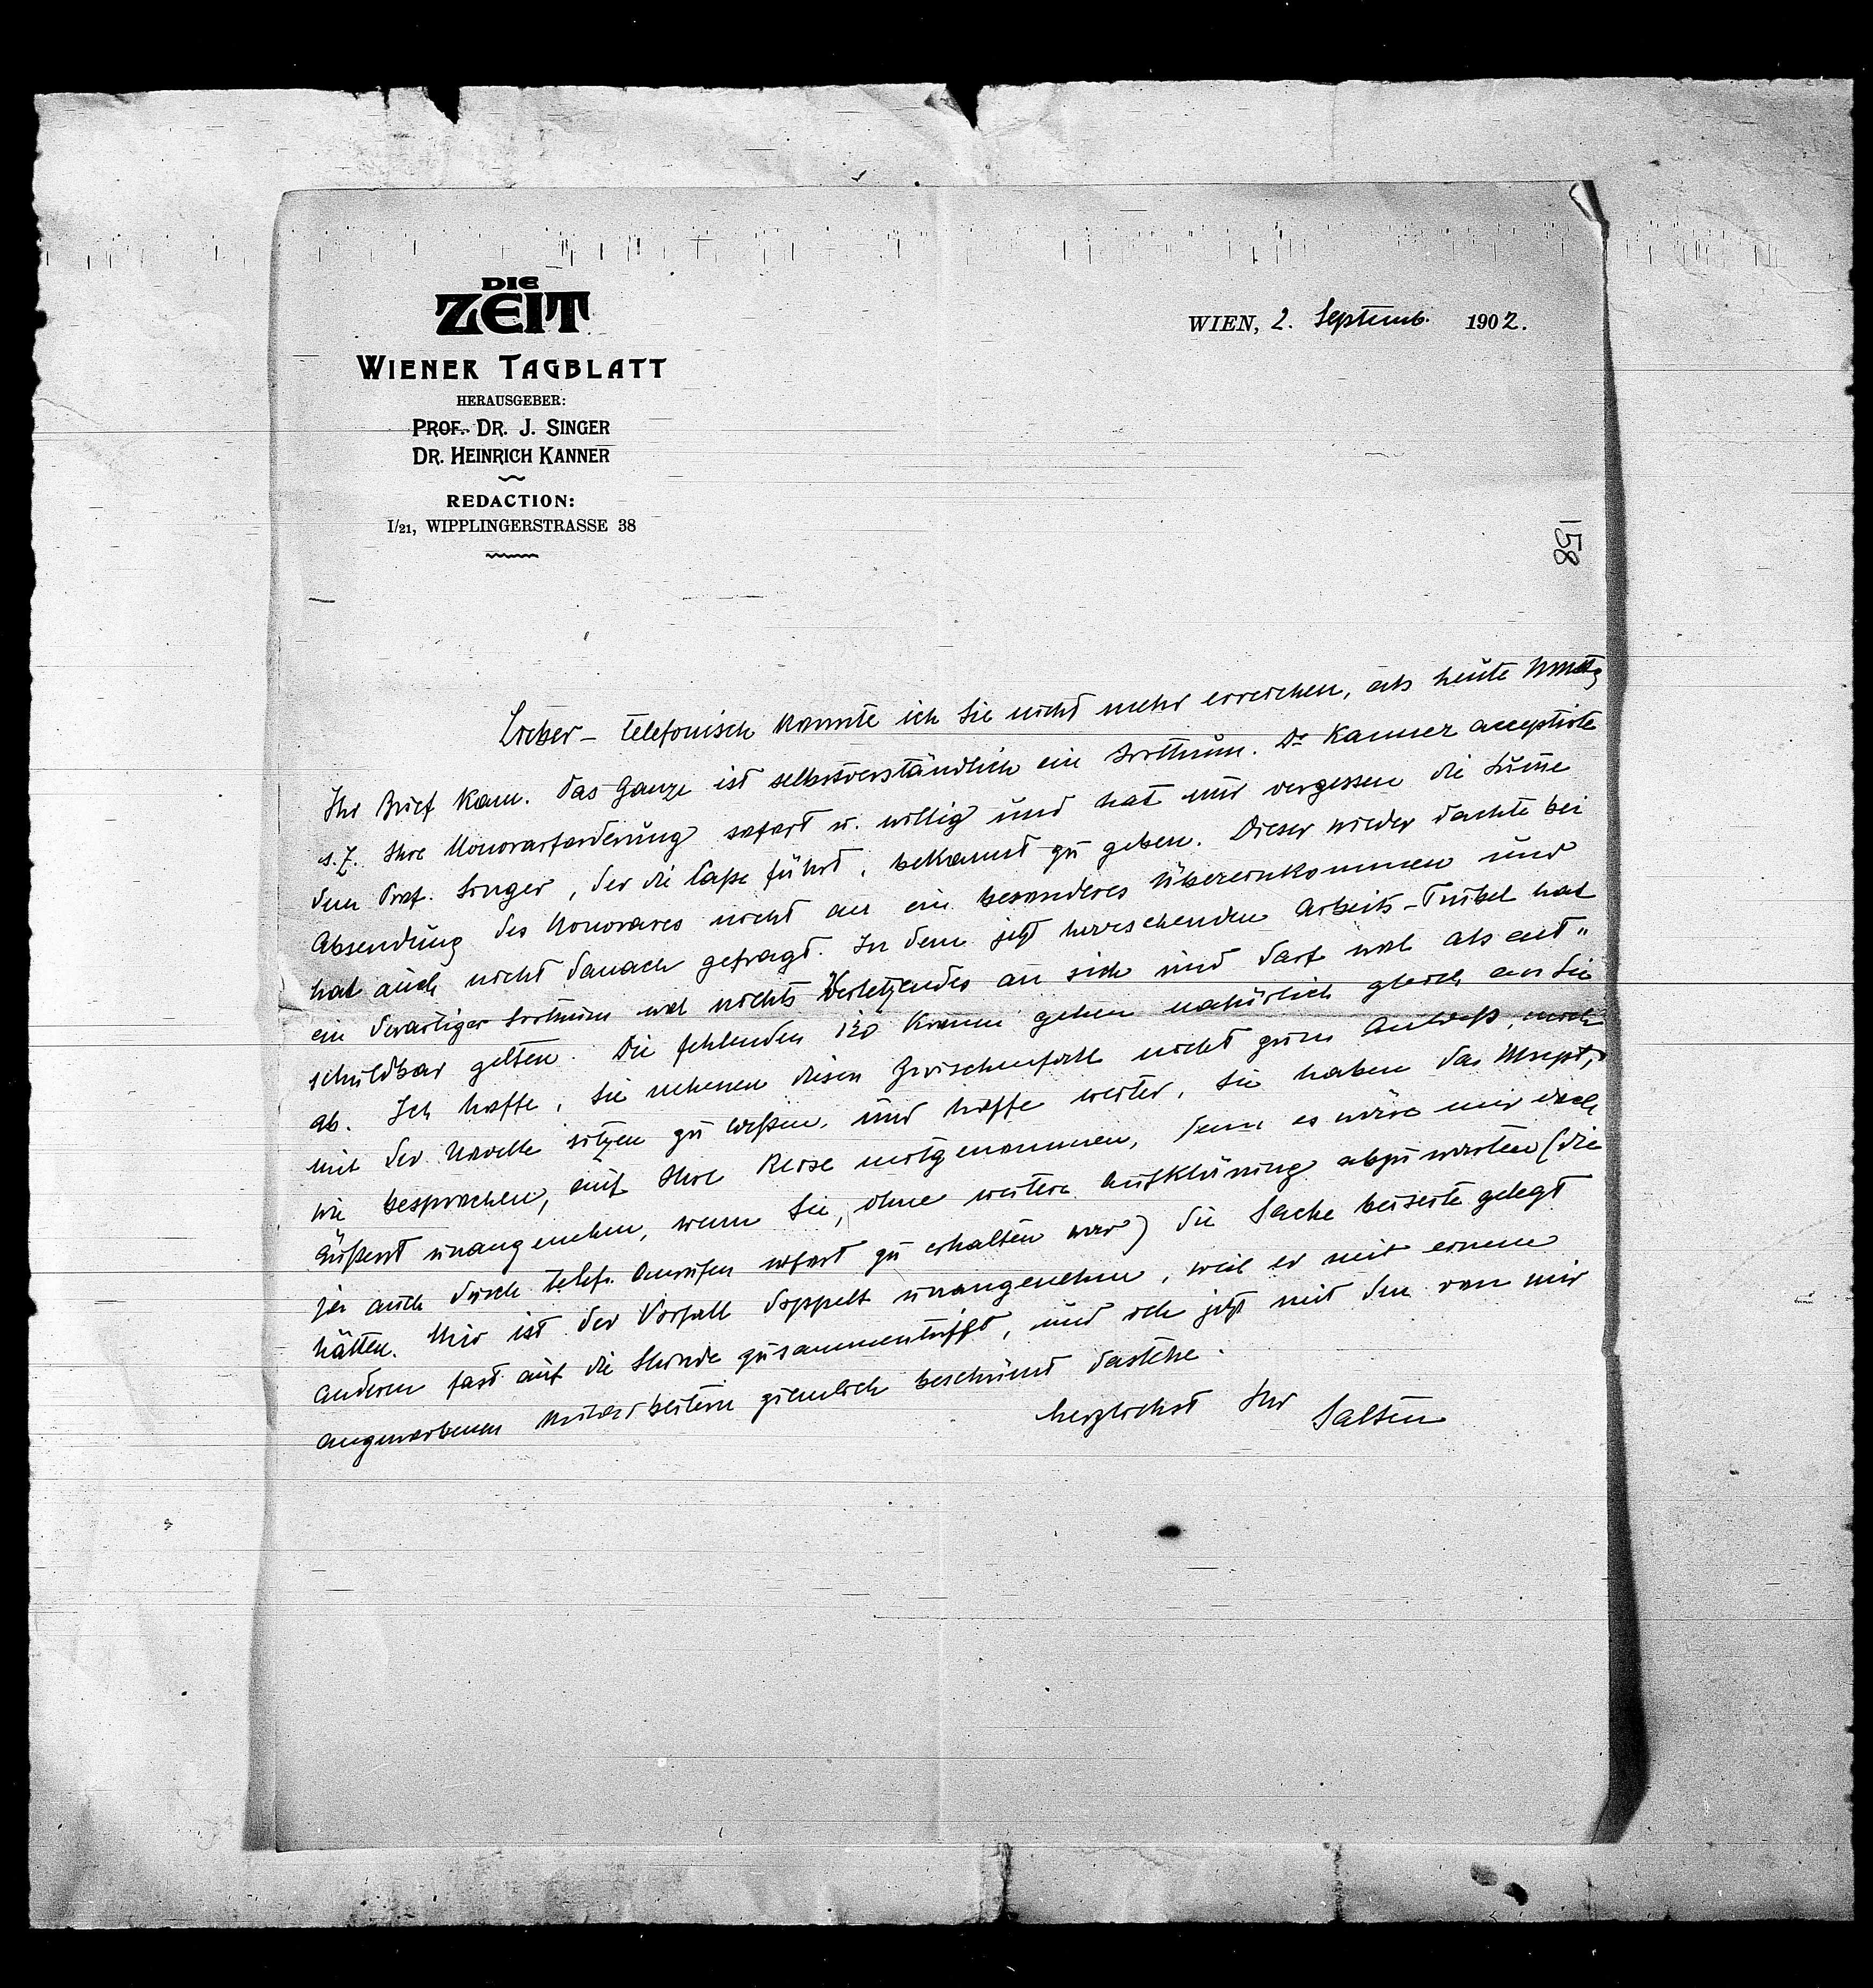 DIE
ZEIT
WIENER TAGBLATT
HERAUSGEBER:
PROF. DR. J. SINGER
DR. HEINRICH KANNER
REDACTION:
I/21, WIPPLINGERSTRASSE 38
WIEN, 2. Septemb. 1902.
158
Lieber – telefonisch konnte ich Sie nicht mehr erreichen, als heute Nmttg
Ihr Brief kam. Das Ganze ist selbstverständlich ein Irrthum. Dr Kanner acceptirte
s. Z. Ihre Honorarforderung sofort u. willig und hat nur vergessen die Sum̅e
dem Prof. Singer, der die Casse führt, bekannt zu geben. Dieser wieder dachte bei
Absendung des Honorares nicht an ein besonderes Übereinkommen und
hat auch nicht danach gefragt. In dem jetzt herrschenden Arbeits-Trubel hat
ein derartiger Irrthum wol nichts Verletzendes an sich und darf wol als ent"
schuldbar gelten. Die fehlenden 120 Kronen gehen natürlich gleich an Sie
ab. Ich hoffe, Sie nehmen diesen Zwischenfall nicht zum Anlaß, mich
mit der Novelle sitzen zu laßen, und hoffe weiter, Sie haben das Mnspt,
wie besprochen, auf Ihre Reise mitgenommen, denn es wäre mir doch
äußerst unangenehm, wenn Sie, ohne weitere Aufklärung abzuwarten (die
ja auch durch telef. Anrufen sofort zu erhalten war) die Sache beiseite gelegt
hätten. Mir ist der Vorfall doppelt unangenehm, weil er mit einem
anderen fast auf die Stunde zusammentrifft, und ich jetzt mit den von mir
angeworbenen Mitarbeitern ziemlich beschämt dastehe.
herzlichst Ihr Salten